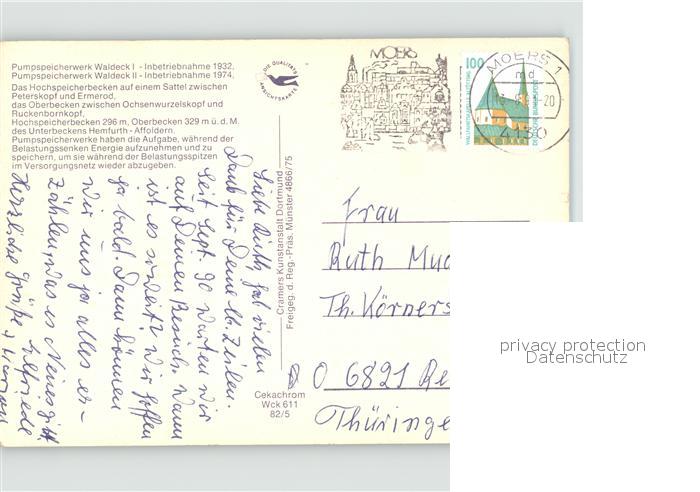 Pumpspeicherwerk Waldeck I - Inbetriebnahme 1932,
Pumpspeicherwerk Waldeck II - Inbetriebnahme 1974,
Das Hochspeicherbecken auf einem Sattel zwischen
Peterskopf und Ermerod,
das Oberbecken zwischen Ochsenwurzelskopf und
Ruckenbornkopf,
Hochspeicherbecken 296 m, Oberbecken 329 m ü. d. M.
des Unterbeckens Hemfurth - Affoldern.
Pumpspeicherwerke haben die Aufgabe, während der
Belastungssenken Energie aufzunehmen und zu
speichern, um sie während der Belastungsspitzen
im Versorgungsnetz wieder abzugeben.
DIE QUALITÄTS
ANSICHTSKARTE
Liebe Ruth, hab vielen
Dank für Deine lb. Zeilen.
Seit Sept. 90 warten wir
auf Deinen Besuch. Wann
ist es soweit? Wir hoffen
ja bald. Dann können
wir uns ja alles er-
zählen, was es Neues gibt.
Herzliche Grüße
Cramers Kunstanstalt Dortmund
Freigeg. d. Reg.-Präs. Münster 4866/75
Cekachrom
Wck 611
82/5
MOERS
100
WALLFAHRTSKAPELLE ALTÖTTING
DEUTSCHE BUNDESPOST
MOERS 1
md
20
4130
Frau
Ruth
Th. Körners
O 6821 Re
Thüringe
privacy protection
Datenschutz